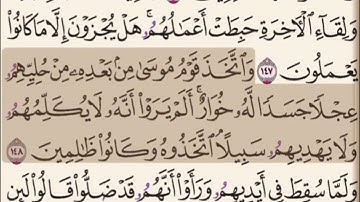 وَلِقَآءِ اَ۬لَاخِرَةِ حَبِطَتَ اَعۡمَٰلُهُمُۥ هَلۡ يُجۡزَوۡنَ إِلَّا مَا كَانُواْ
يَعۡمَلُونَ ١٤٧ وَاَتَّخَذَ قَوۡمُ مُوسَىٰ مِنۢ بَعۡدِهِۦ مِنۡ حُلِيِّهِمُۥ
عِجۡلٗا جَسَدٗا لَّهُۥ خُوَارٌۚ اَلَمۡ يَرَوَاْ اَنَّهُۥ لَا يُكَلِّمُهُمُۥ
وَلَا يَهۡدِيهِمُۥ سَبِيلًاۘ اِ۪تَّخَذُوهُ وَكَانُواْ ظَٰلِمِينَ ١٤٨
وَلَمَّا سُقِطَ فِےٓ أَيۡدِيهِمُۥ وَرَأَوَاْ اَنَّهُمُۥ قَدۡ ضَلُّواْ قَالُواْ لَئِن